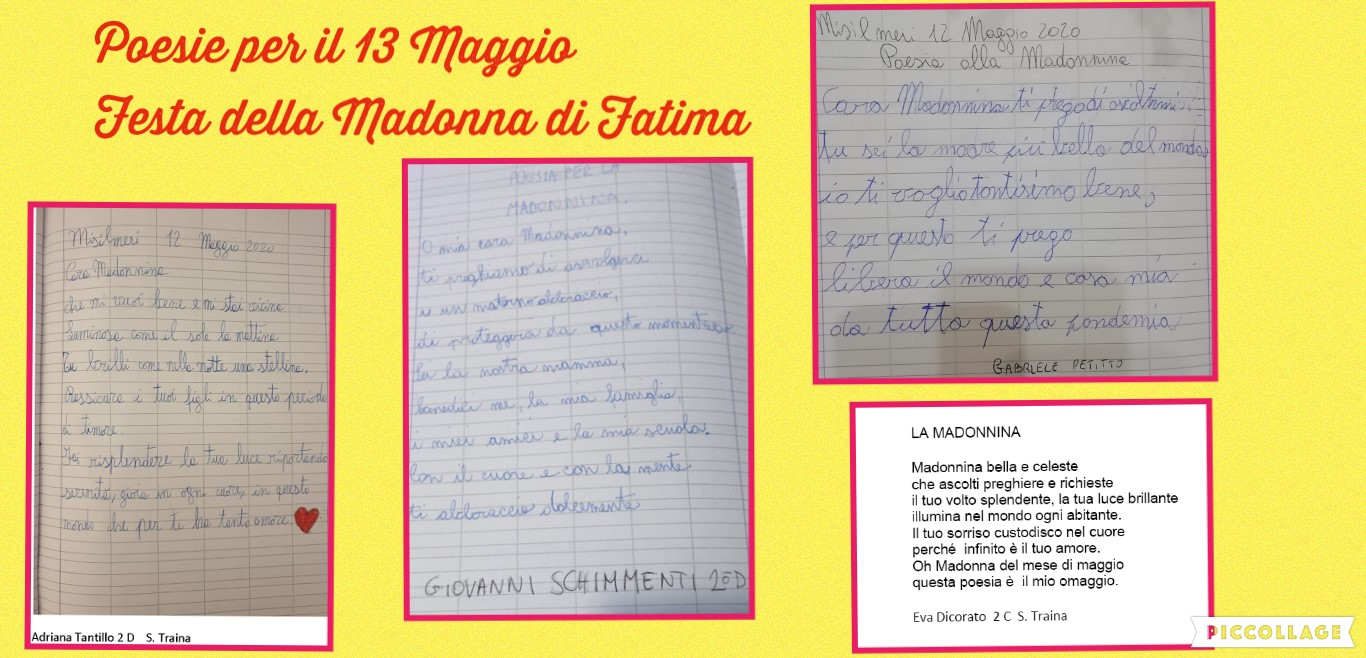 Poesie per il 13 Maggio
Festa della Madonna di Fatima
Misilmeri 12 Maggio 2020
Cara Madonnina
che mi vuoi bene e mi stai vicina
Luminosa come il sole la mattina
Tu brilli come nella notte una stellina.
Rassicura i tuoi figli in questo periodo
di timore.
Fai risplendere la tua luce riportando
serenità, gioia in ogni cuore, in questo
mondo che per te ha tanto amore.
Adriana Tantillo 2 D S. Traina
POESIA PER LA
MADONNINA.
O mia cara Madonnina,
ti preghiamo di avvolgerci
in un materno abbraccio,
di proteggerci da questo momentaccio
la nostra mamma,
benedici me, la mia famiglia,
i miei amici e la mia scuola.
Con il cuore e con la mente
ti abbraccio dolcemente
GIOVANNI SCHIMMENTI 2°D
Misilmeri 12 Maggio 2020
Poesia alla Madonnina
Cara Madonnina ti prego di ascoltarmi:
tu sei la madre più bella del mondo
io ti voglio tantissimo bene,
e per questo ti prego
libera il mondo e casa mia
da tutta questa pandemia
GABRIELE PETITTO
LA MADONNINA
Madonnina bella e celeste
che ascolti preghiere e richieste
il tuo volto splendente, la tua luce brillante
illumina nel mondo ogni abitante.
Il tuo sorriso custodisco nel cuore
perché infinito è il tuo amore.
Oh Madonna del mese di maggio
questa poesia è il mio omaggio.
Eva Dicorato 2 C S. Traina
PICCOLLAGE